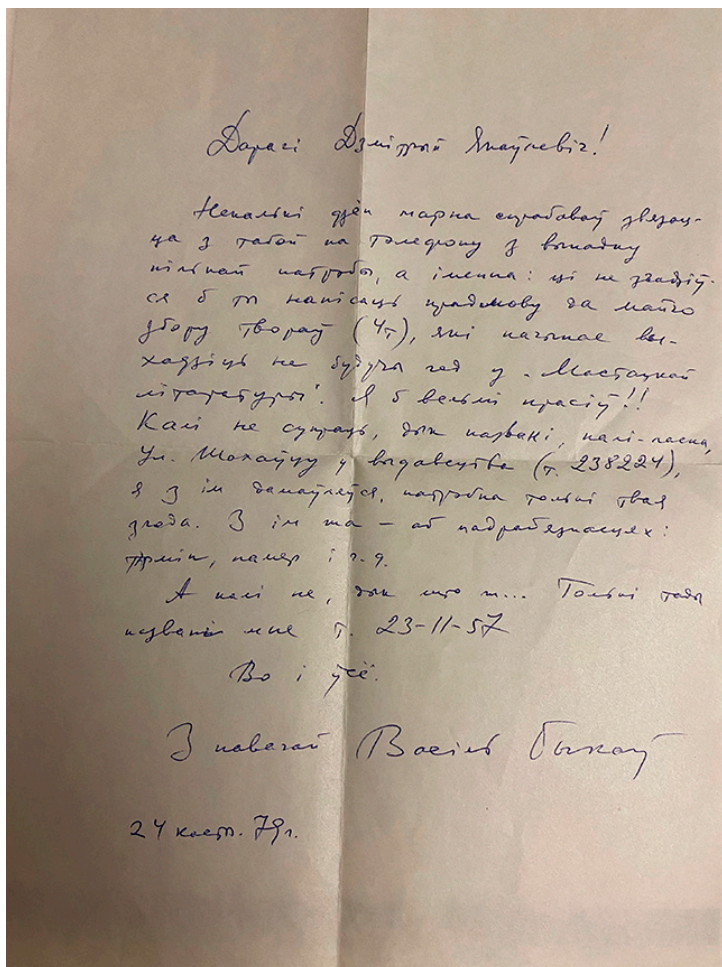 Дарагі Дзмітрый Якаўлевіч!
Некалькі дзён марна спрабаваў звязац-
ца з табой па тэлефону з выпадку
пільнай патрэбы, а іменна: ці не згадзіў-
ся б ты напісаць прадмову да майго
збору твораў (4т), які пачынае вы-
хадзіць на будучы год у "Мастацкай
літаратуры". Я б вельмі прасіў!!
Калі не супраць, дык пазвані, калі-ласка,
Ул. у выдавецтва (т. 238224),
я з ім дамаўляўся, патрэбна толькі твая
згода. З ім жа – аб падрабязнасцях:
тэрмін, памер і г.д.
А калі не, дык што ж... Толькі тады
пазвані мне т. 23-11-57
Во і ўсё.
З павагай Васіль Быкаў
24 кастр. 79г.